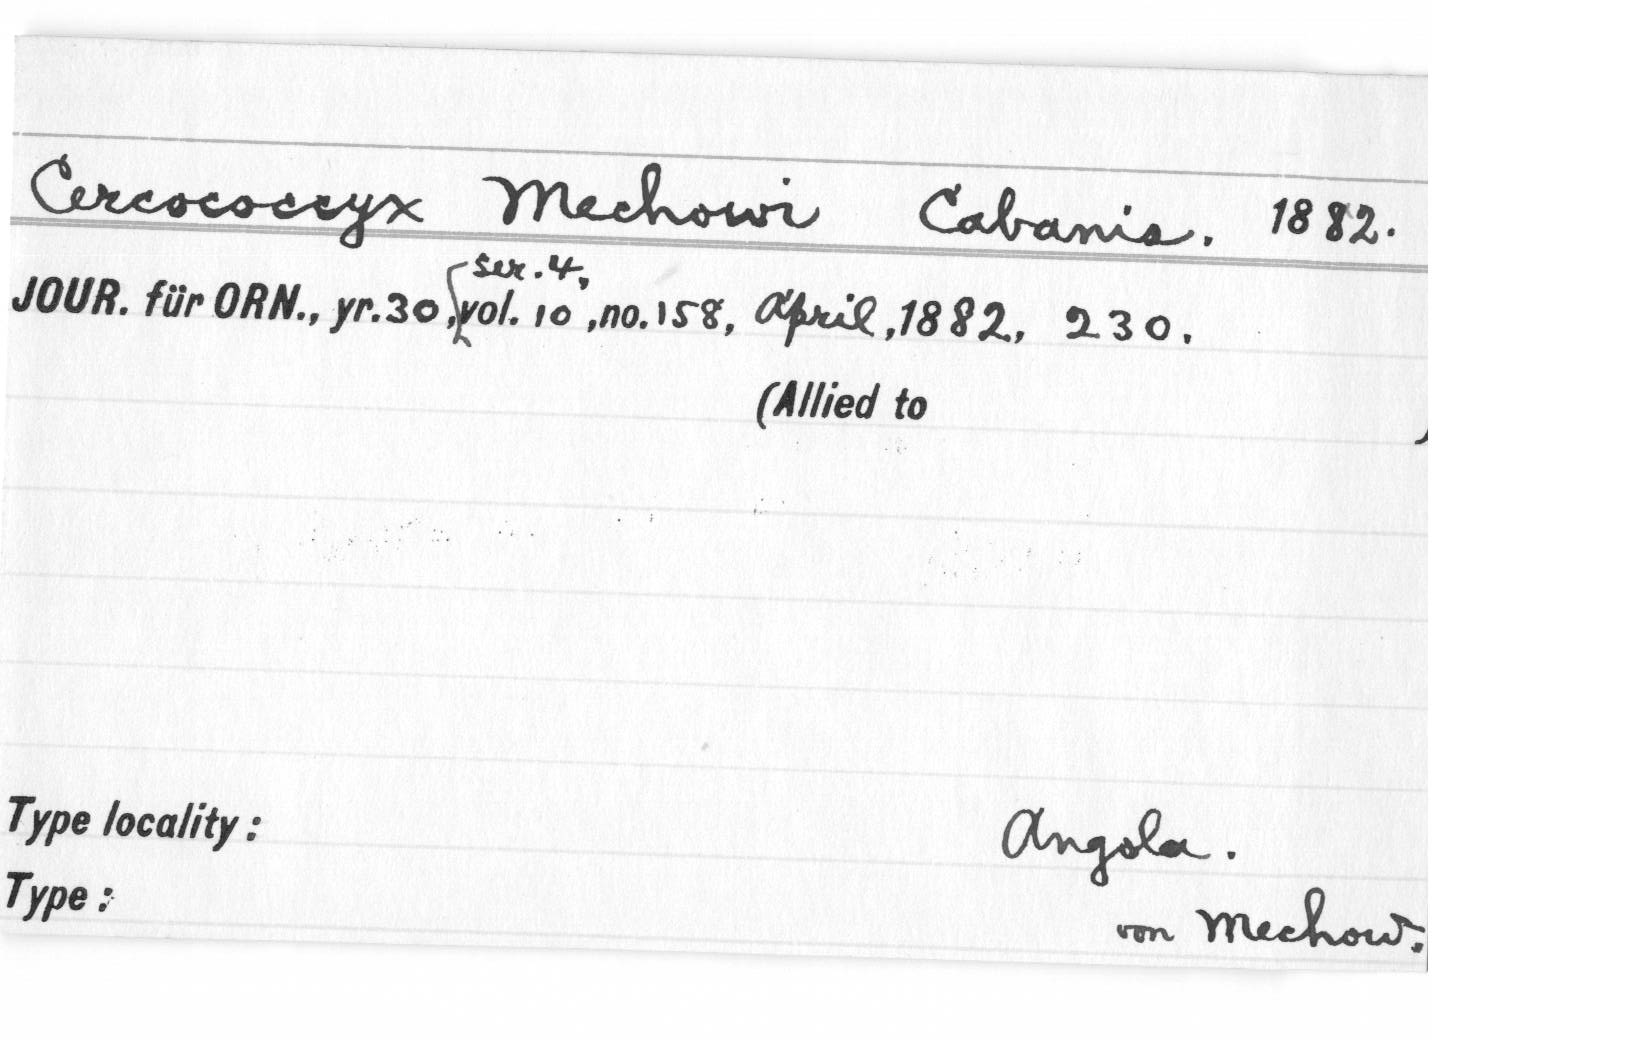 Cercococcyx Mechowi Cabanis. 1882.
ser. 4,
JOUR. für ORN., yr. 30, [vol. 10, no. 158, April, 1882, 230.
(Allied to )
Type locality: Angola.
Type: von Mechow.